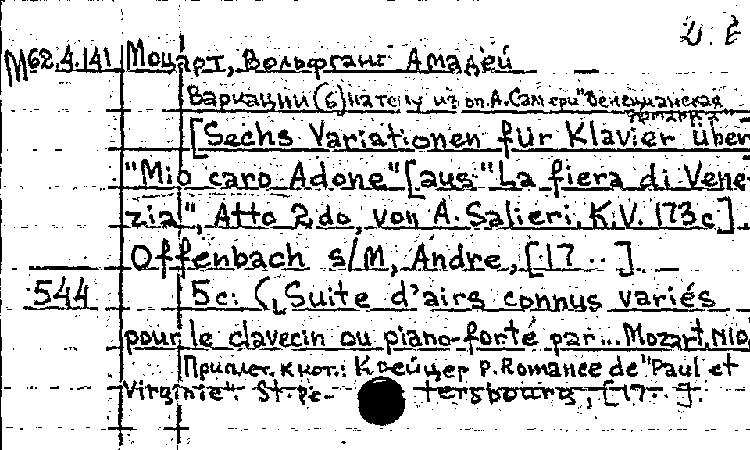 M62.4.141 Моцарт, Вольфганг Амадей
Вариации (6) на тему из оп. А. Сальери "Венецианская
ярмарка"
[Sechs Variationen für Klavier über
"Mio caro Adone" [aus "La fiera di Vene-
zia", Atto 2do, von A. Salieri. K.V. 173c].
Offenbach s/M, Andre, [17..]. —
544 5c: (Suite d'airs connus variés
pour le clavecin ou piano-forte par... Mozart, N10
Приплет. к нот.: Крейцер Р. Romance de "Paul et
Virginie". St. Pe- tersbourg, [17..].